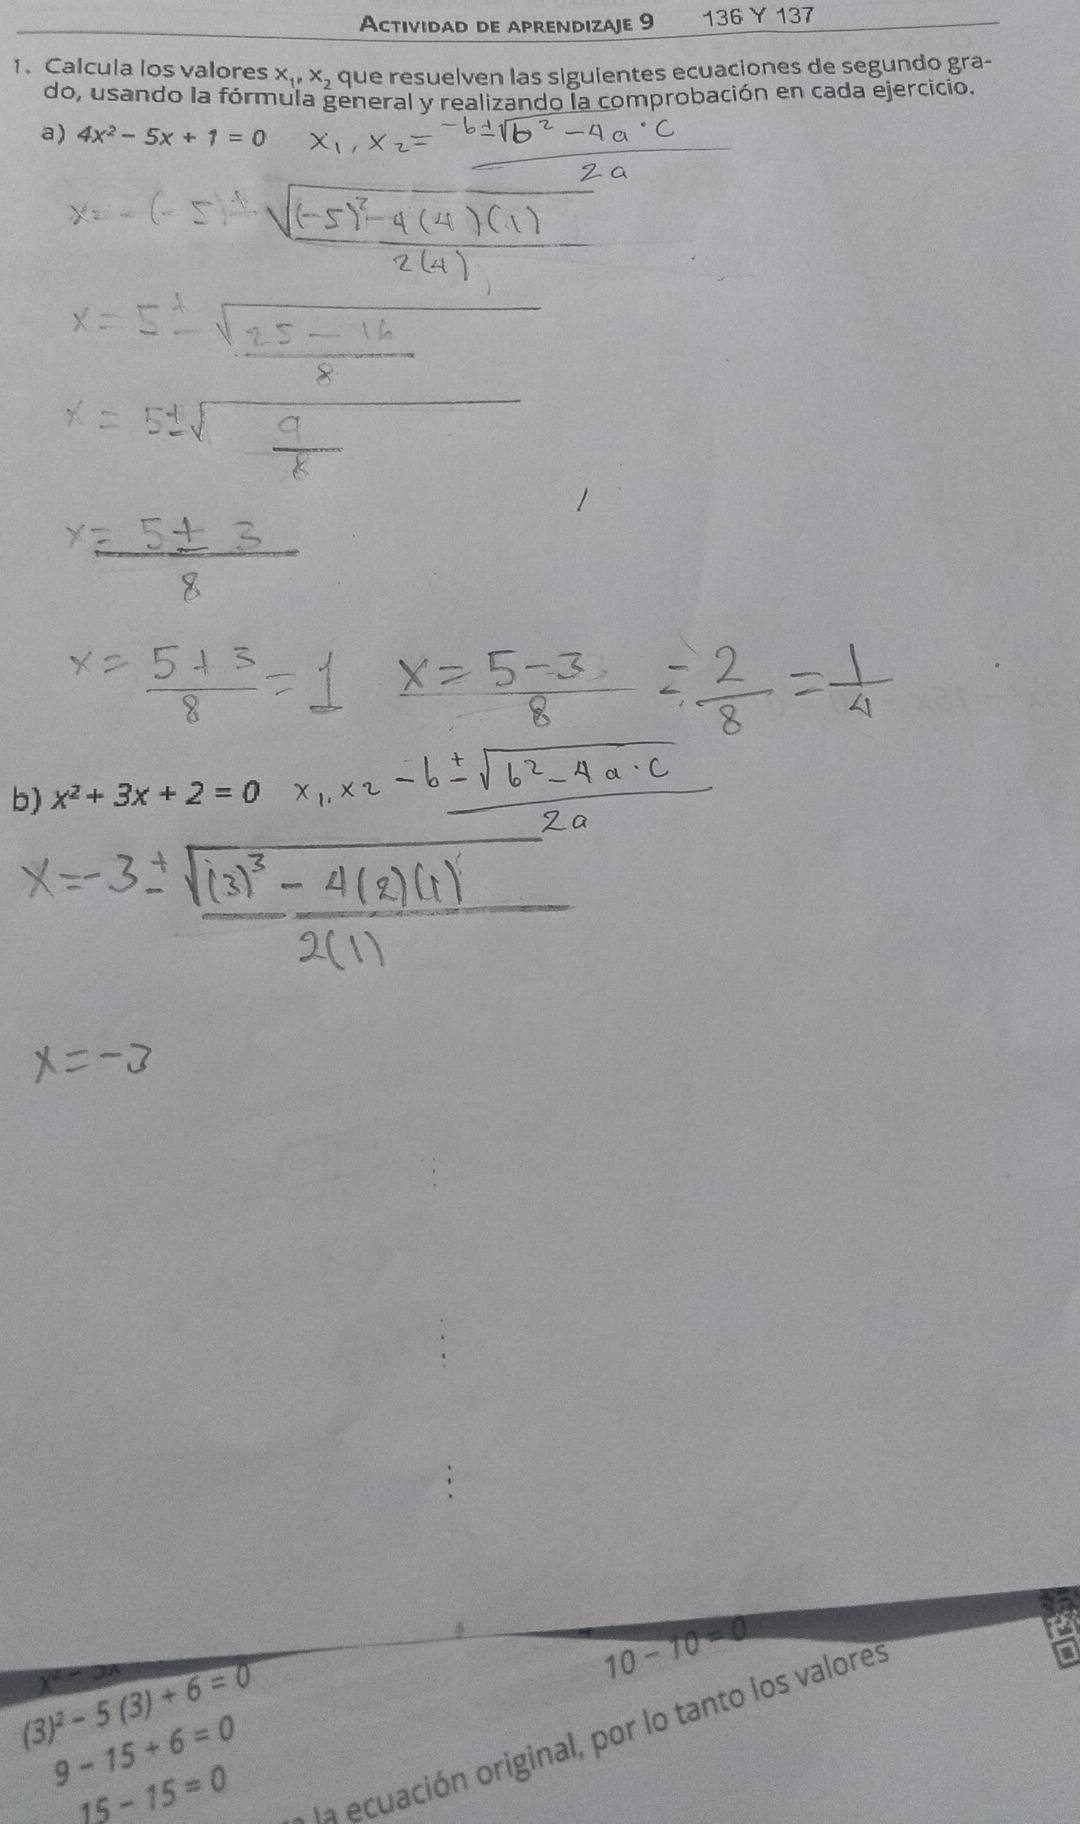 ACTIVIDAD DE APRENDIZAJE 9 136 Y 137
1. Calcula los valores x₁, x₂ que resuelven las siguientes ecuaciones de segundo gra-
do, usando la fórmula general y realizando la comprobación en cada ejercicio.
a) 4x² – 5x + 1 = 0 x₁, x₂ = -b±√b² -4a·c
2a
x= -(-5)± √(-5)²-4(4)(1)
2(4)
x= 5± √25 - 16
8
x = 5±√ 9
8
x= 5± 3
8
x= 5+3/8 = 1 x= 5-3/8 = 2/8 = 1/4
b) x² + 3x + 2 = 0 x₁, x2 -b±√b²-4a·c
2a
x=-3±√(3)³ - 4(2)(1)
2(1)
x=-3
10 – 10 = 0
(3)² – 5 (3) + 6 = 0
9 – 15 + 6 = 0
15 – 15 = 0
la ecuación original, por lo tanto los valores